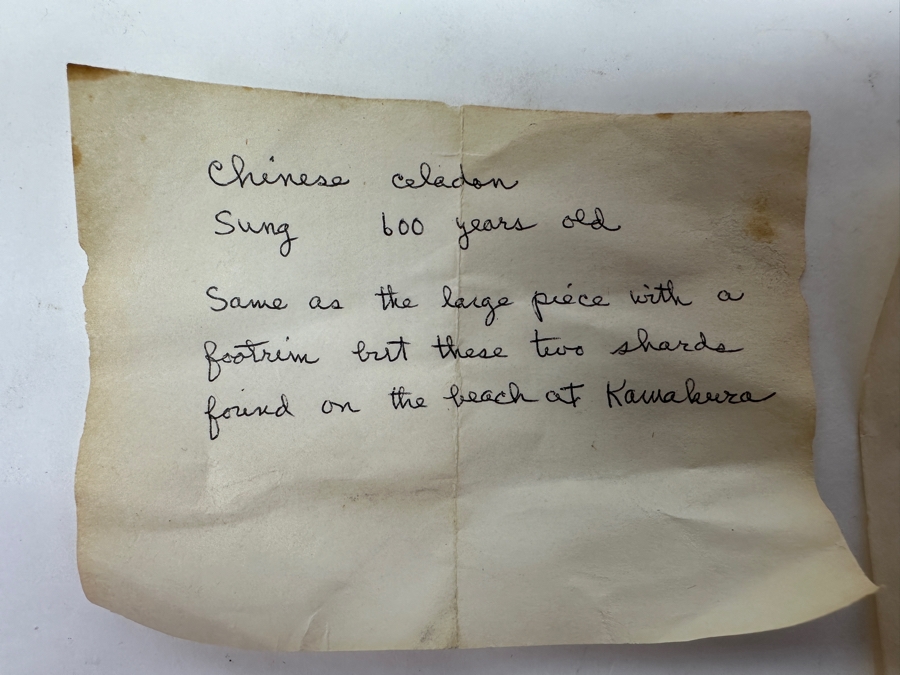 Chinese celadon
Sung 600 years old
Same as the large piece with a
footrim but these two shards
found on the beach at Kamakura